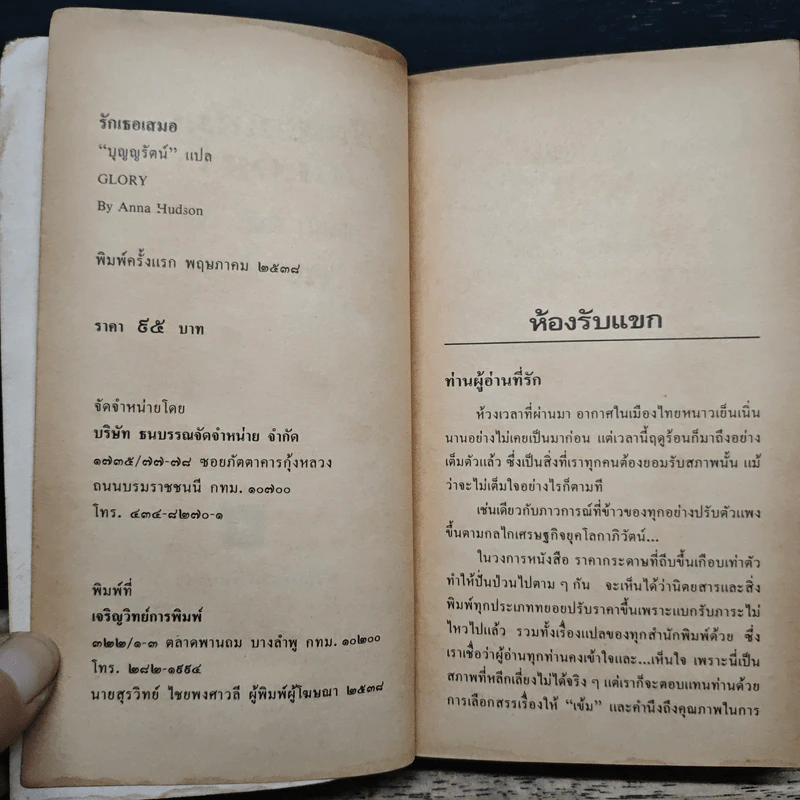 รักเธอเสมอ
“บุญญรัตน์” แปล
GLORY
By Anna Hudson
พิมพ์ครั้งแรก พฤษภาคม ๒๕๓๘
ราคา ๙๕ บาท
จัดจำหน่ายโดย
บริษัท ธนบรรณจัดจำหน่าย จำกัด
๑๗๓๕/๗๗-๗๘ ซอยภัตตาคารกุ้งหลวง
ถนนบรมราชชนนี กทม. ๑๐๗๐๐
โทร. ๔๓๔-๘๒๗๐-๑
พิมพ์ที่
เจริญวิทย์การพิมพ์
๓๒๒/๑-๓ ตลาดพานถม บางลำพู กทม. ๑๐๒๐๐
โทร. ๒๘๒-๑๙๙๔
นายสุรวิทย์ ไชยพงศาวลี ผู้พิมพ์ผู้โฆษณา ๒๕๓๘
ห้องรับแขก
ท่านผู้อ่านที่รัก
ห้วงเวลาที่ผ่านมา อากาศในเมืองไทยหนาวเย็นเนิ่น
นานอย่างไม่เคยเป็นมาก่อน แต่เวลานี้ฤดูร้อนก็มาถึงอย่าง
เต็มตัวแล้ว ซึ่งเป็นสิ่งที่เราทุกคนต้องยอมรับสภาพนั้น แม้
ว่าจะไม่เต็มใจอย่างไรก็ตามที
เช่นเดียวกับภาวการณ์ที่ข้าวของทุกอย่างปรับตัวแพง
ขึ้นตามกลไกเศรษฐกิจยุคโลกาภิวัตน์...
ในวงการหนังสือ ราคากระดาษที่ถีบขึ้นเกือบเท่าตัว
ทำให้ปั่นป่วนไปตาม ๆ กัน จะเห็นได้ว่านิตยสารและสิ่ง
พิมพ์ทุกประเภททยอยปรับราคาขึ้นเพราะแบกรับภาระไม่
ไหวไปแล้ว รวมทั้งเรื่องแปลของทุกสำนักพิมพ์ด้วย ซึ่ง
เราเชื่อว่าผู้อ่านทุกท่านคงเข้าใจและ...เห็นใจ เพราะนี่เป็น
สภาพที่หลีกเลี่ยงไม่ได้จริง ๆ แต่เราก็จะตอบแทนท่านด้วย
การเลือกสรรเรื่องให้ “เข้ม” และคำนึงถึงคุณภาพในการ